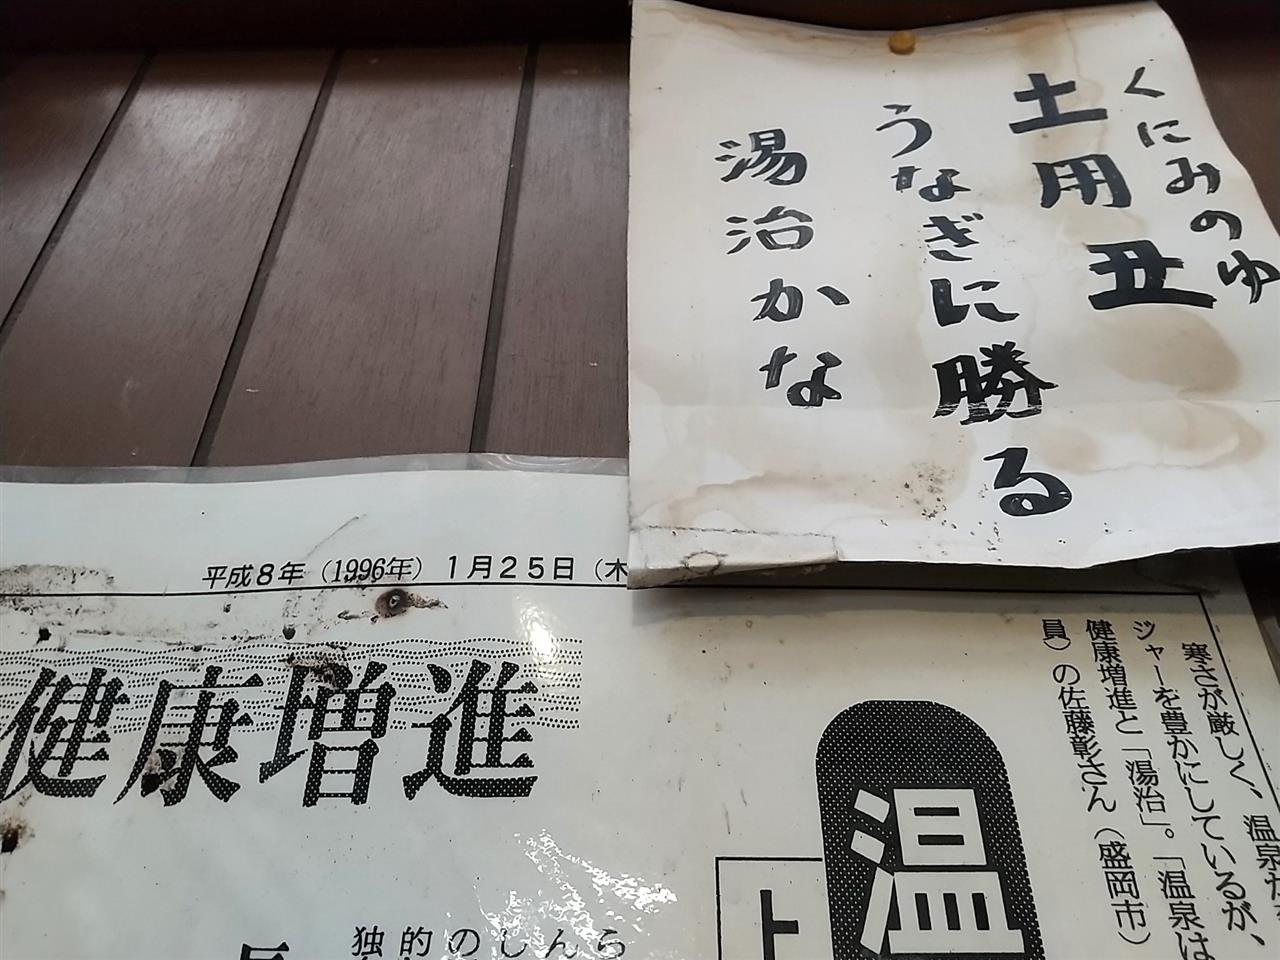 くにみのゆ
土用丑
うなぎに勝る
湯治かな
平成8年（1996年）1月25日（木
健康増進
寒さが厳しく、温泉が
ジャーを豊かにしているが、
健康増進と「湯治」。「温泉は
員）の佐藤彰さん（盛岡市）
温
上
独的のしんら